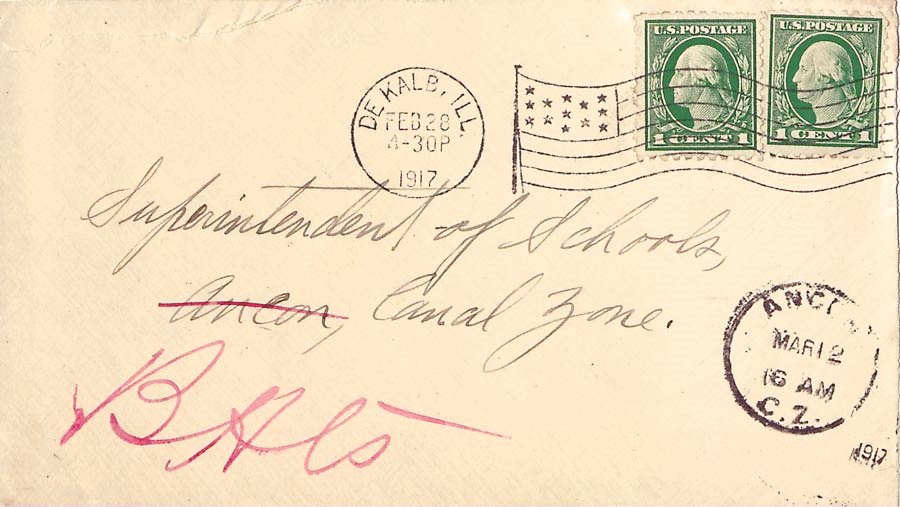 U.S. POSTAGE U.S. POSTAGE
1 CENT 1 1 CENT 1
DE KALB, ILL.
FEB 28
4-30P
1917
Superintendent of Schools,
Ancon, Canal Zone.
B Hts
ANCON
MAR 12
6 AM
C.Z.
1917